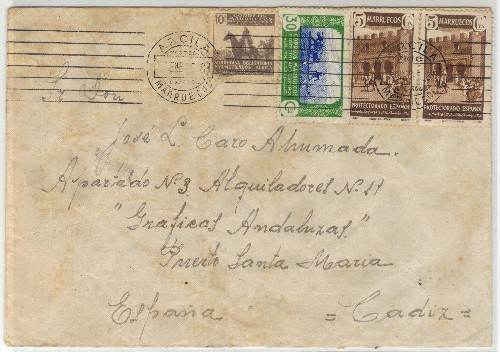 10
30
5 MARRUECOS 5
5 MARRUECOS 5
PROTECTORADO ESPAÑOL
PROTECTORADO ESPAÑOL
ARCILA
MARRUECOS
Sr. Don
Jose L. Caro Ahumada.
Apartado Nº 3 Alquiladores Nº 11
"Graficas Andaluzas"
Puerto Santa Maria
España = Cadiz =